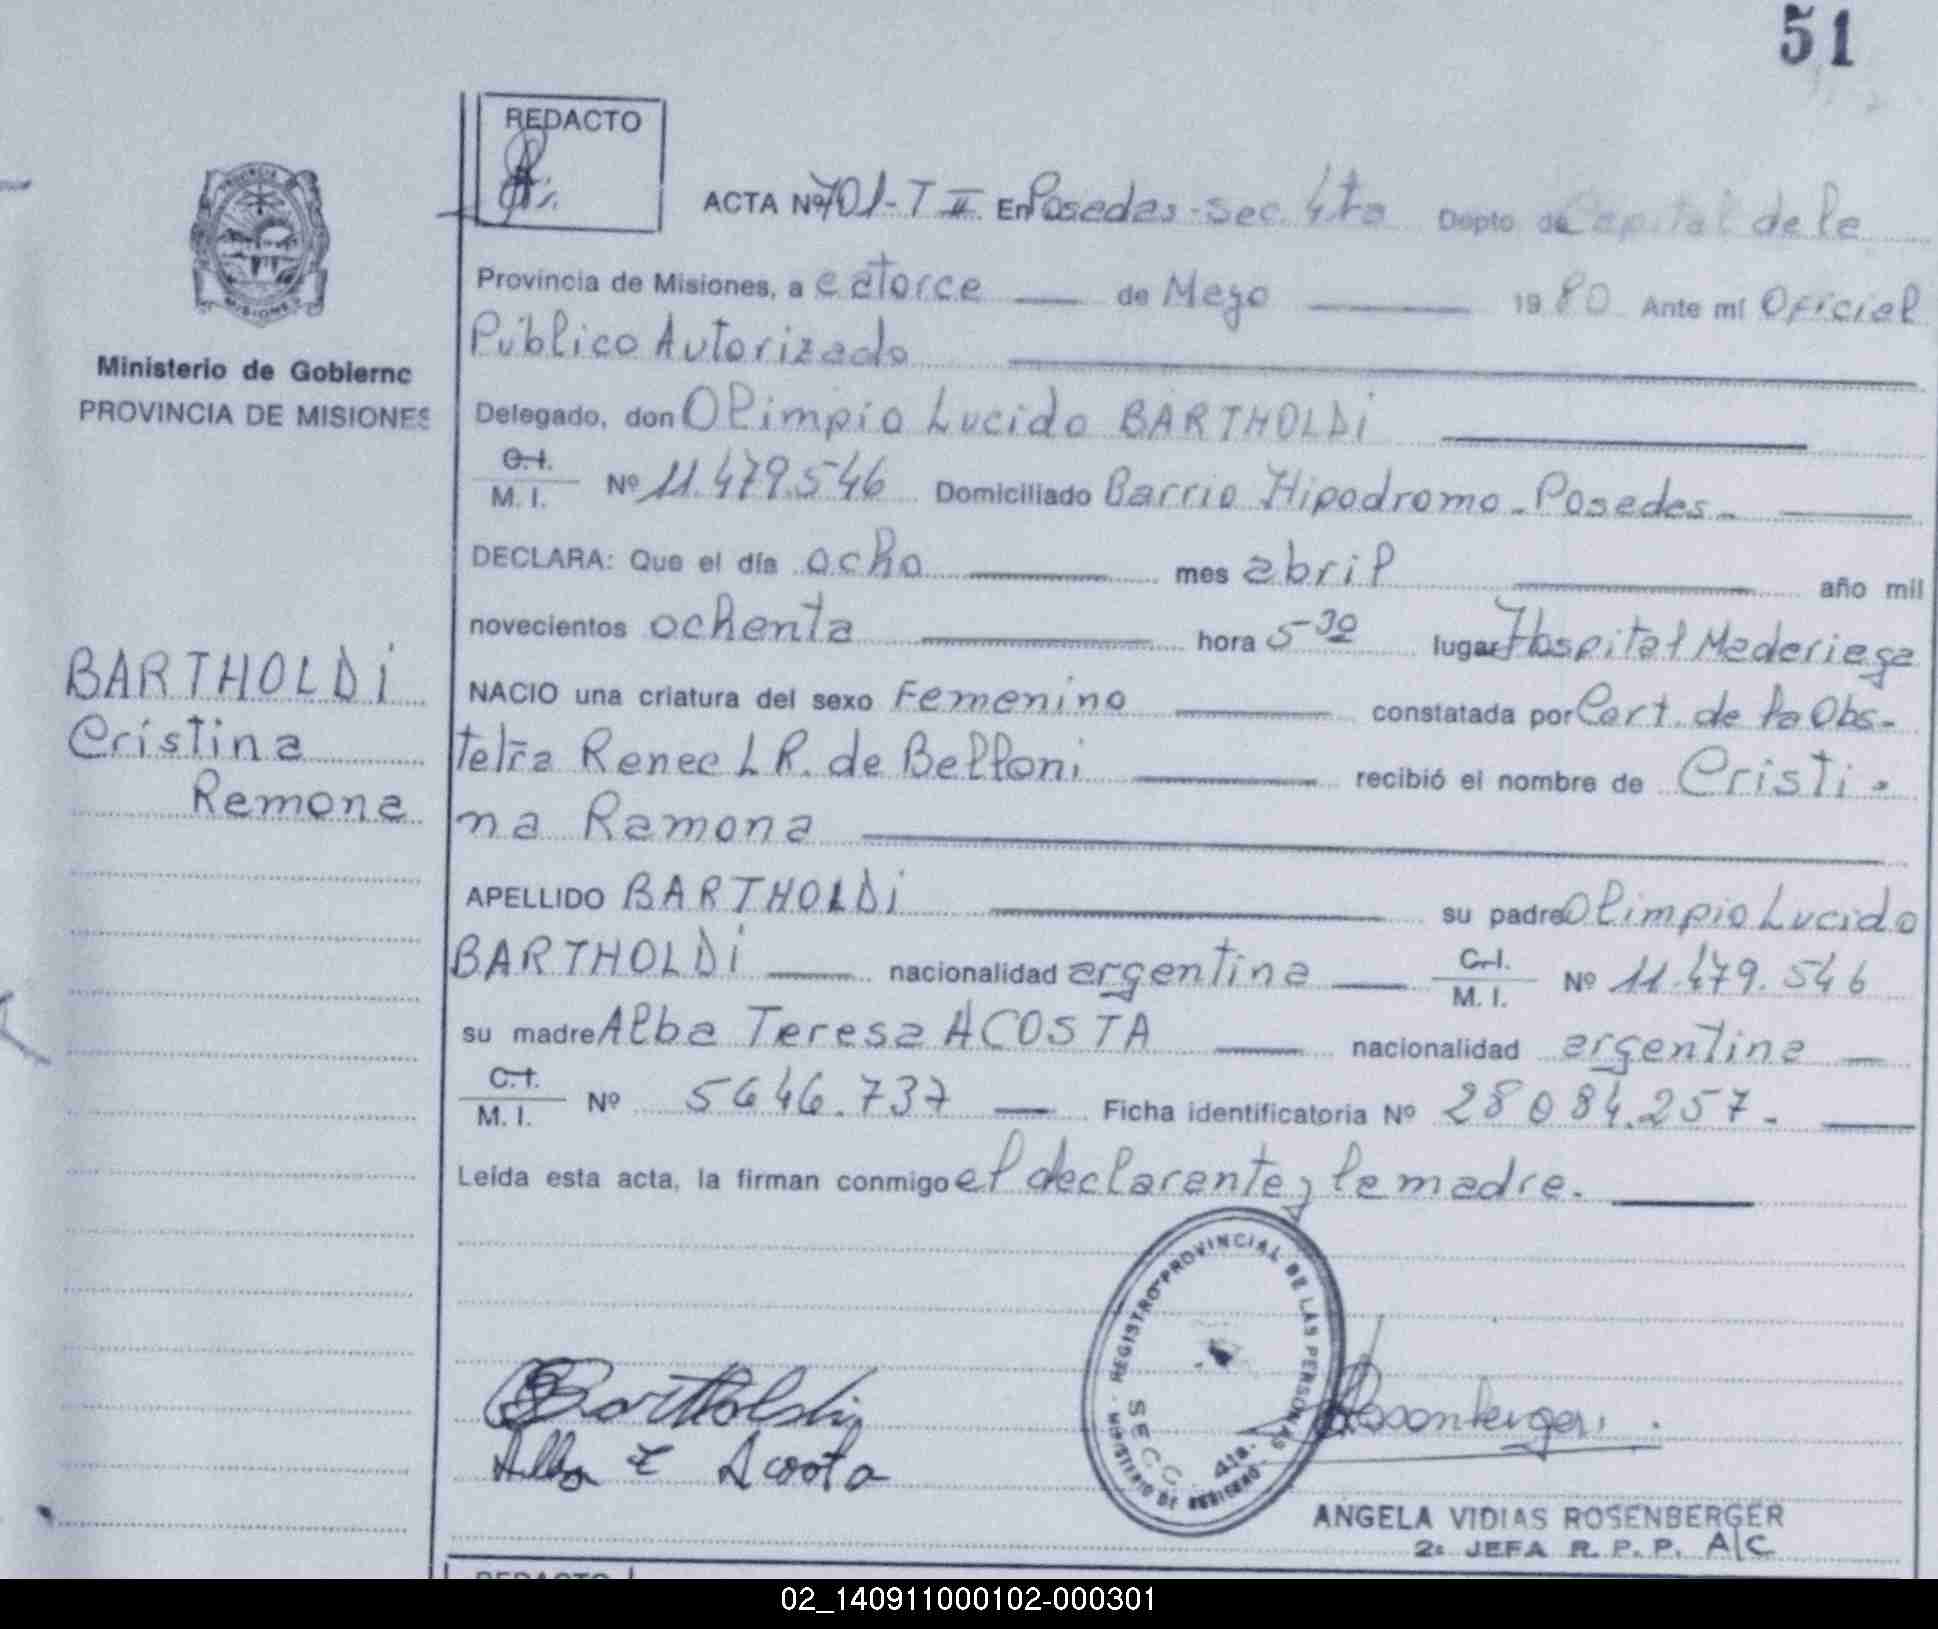 51
REDACTO
ACTA Nº 701-T II En Posadas-Sec. 4ta Depto de Capital de la
Provincia de Misiones, a catorce de Mayo 1980 Ante mí Oficial
Público Autorizado
Ministerio de Gobierno
PROVINCIA DE MISIONES
Delegado, don Olimpio Lucido BARTHOLDI
C.I.
M. I. Nº 11.479.546 Domiciliado Barrio Hipodromo-Posadas-
DECLARA: Que el día ocho mes abril año mil
novecientos ochenta hora 5-30 lugar Hospital Madariaga
BARTHOLDI
Cristina
Ramona
NACIO una criatura del sexo Femenino constatada por Cert. de la Obs-
tetra Renee L R. de Belloni recibió el nombre de Cristi-
na Ramona
APELLIDO BARTHOLDI su padre Olimpio Lucido
BARTHOLDI nacionalidad argentina C.I. M. I. Nº 11.479.546
su madre Alba Teresa ACOSTA nacionalidad argentina
C.I.
M. I. Nº 5646.737 Ficha identificatoria Nº 28084.257-
Leída esta acta, la firman conmigo el declarante y la madre.
REGISTRO PROVINCIAL DE LAS PERSONAS
SECC. 4ta.
MINISTERIO DE GOBIERNO
Bartholdi
Alba T Acosta
Rosenberger
ANGELA VIDIAS ROSENBERGER
2ª JEFA R. P. P. A/C
REDACTO
02_140911000102-000301